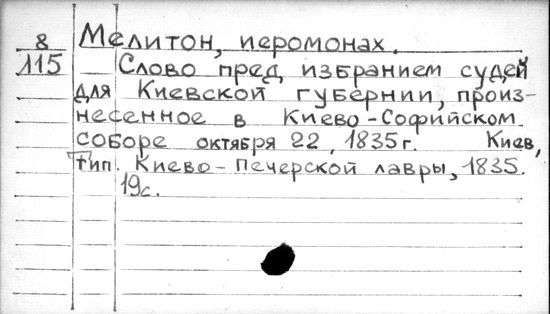 8
115
Мелитон, иеромонах.
Слово пред избранием судей
для Киевской губернии, произ-
несенное в Киево-Софийском
соборе октября 22, 1835 г. Киев,
тип. Киево-Печерской лавры, 1835.
19с.